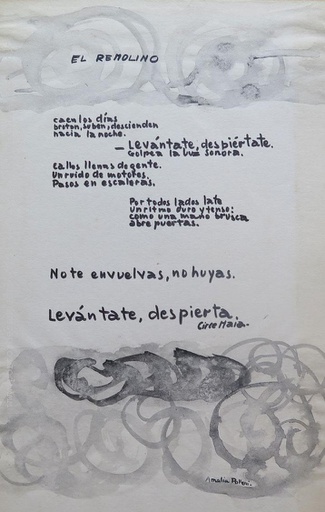 EL REMOLINO
caen los días
brotan, suben, descienden
hacia la noche.
— Levántate, despiértate.
Golpea la luz sonora.
calles llenas de gente.
Un ruido de motores.
Pasos en escaleras.
Por todos lados late
un ritmo duro y tenso:
como una mano brusca
abre puertas.
No te envuelvas, no huyas.
Levántate, despierta.
Circe Maia-
Amalia